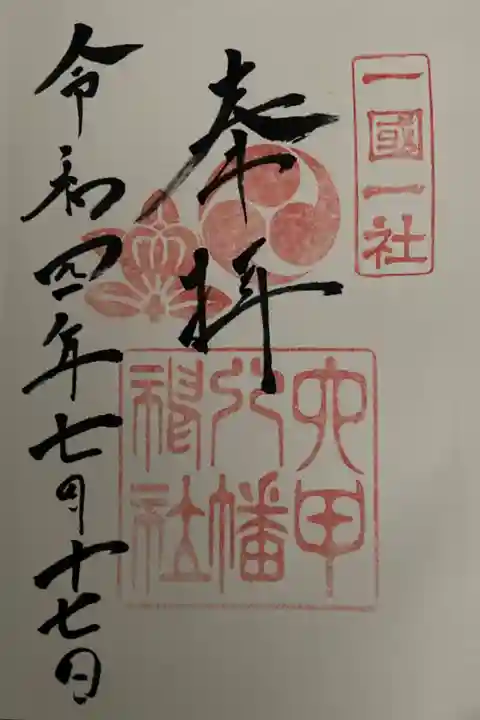 一國一社
奉拝
六甲
八幡
神社
令和四年七月十七日